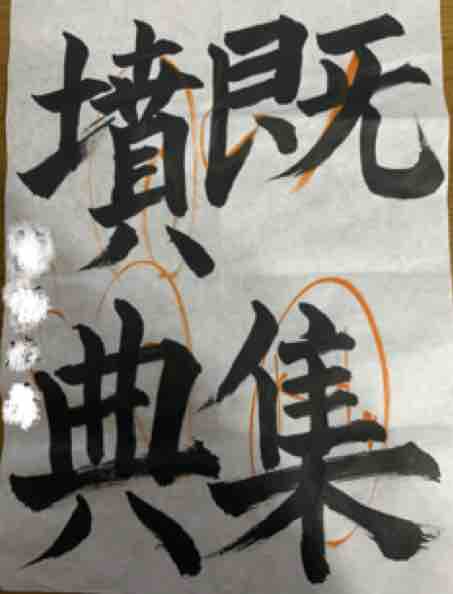 既集
墳典